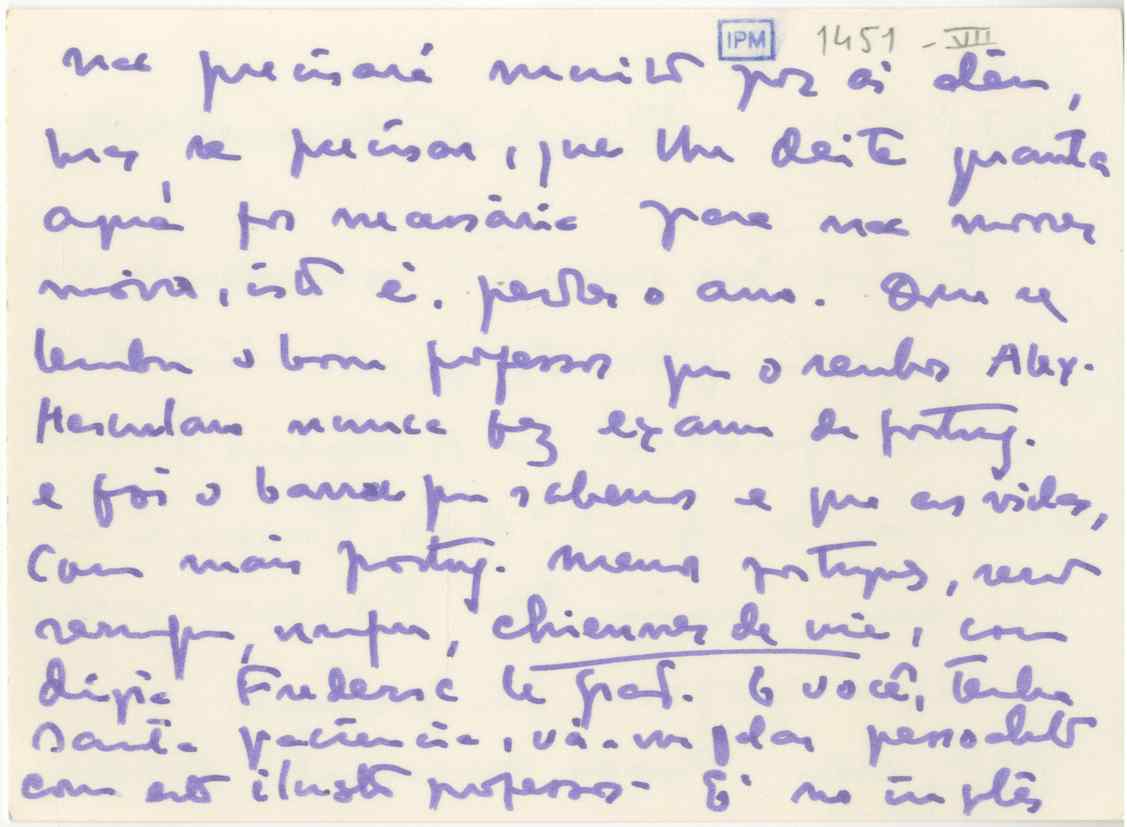 IPM 1451 - VII
não precisará muito por aí além,
mas se precisar, que lhe deite quanta
água for necessária para não
isto é, perder o ano. Que se
lembre o bom professor que o senhor Alex.
Herculano nunca fez exame de portug.
e foi o que sabemos e que as vidas,
com mais portug. menos português, são
sempre, sempre, chiennes de vie, como
dizia Frederic le Grand. E você, tenha
Santa paciência, vá-me falar
com este ilustre professor. É no inglês